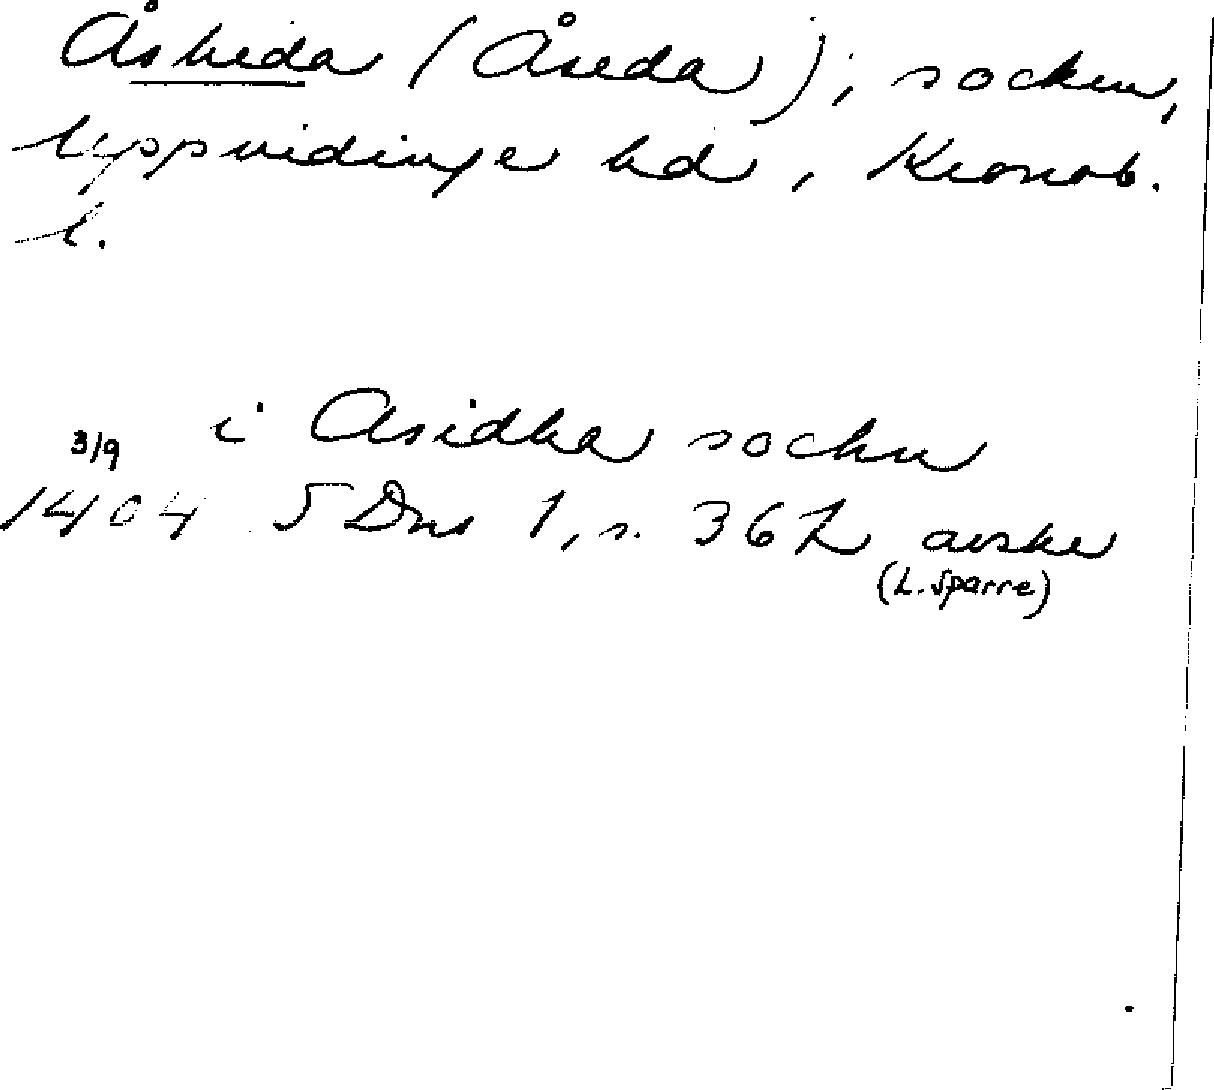 Åsheda (Åseda), socken,
Uppvidinge hd, Kronob.
l.
i Asidha sockn
3/9
1404 SDns 1, s. 367 avskr
(L. Sparre)